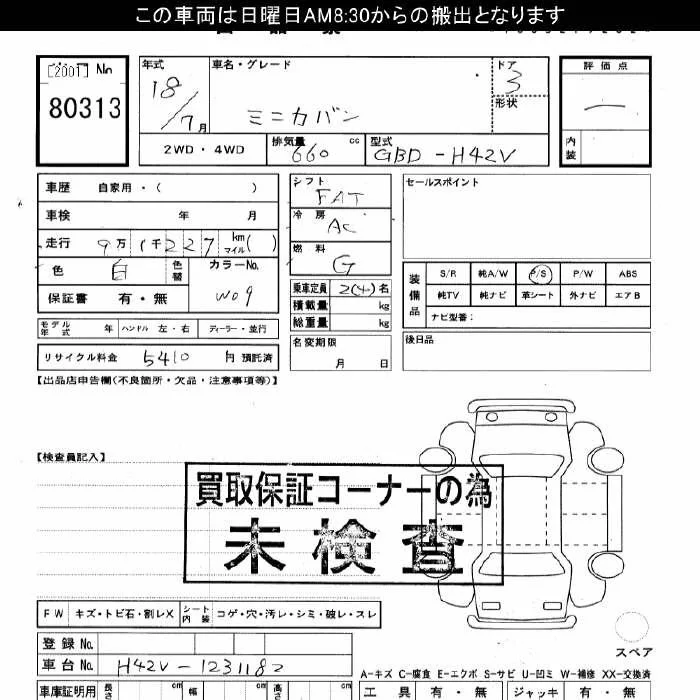 この車両は日曜日AM8:30からの搬出となります
[2001] No
80313
年式 車名・グレード ドア 評価点
18/7月 ミニカバン 3 形状 —
2WD・4WD 排気量 660 cc 型式 GBD-H42V 内装
車歴 自家用・( )
車検 年 月
走行 9万1千227 km マイル( )
色 白 色替 カラーNo. W09
保証書 有・無
モデル年式 年 ハンドル 左・右 ディーラー・並行
リサイクル料金 5410 円 預託済
シフト FAT
冷房 AC
燃料 G
乗車定員 2(4)名
積載量 kg
総重量 kg
名変期限
月 日
セールスポイント
装備品 S/R 純A/W P/S P/W ABS
純TV 純ナビ 革シート 外ナビ エアB
ナビ型番:
後日品
【出品店申告欄(不良箇所・欠品・注意事項等)】
【検査員記入】
買取保証コーナーの為
未検査
FW キズ・トビ石・割レX シート内装 コゲ・穴・汚レ・シミ・破レ・スレ
スペア
登録No.
車台No. H42V-1231182
A-キズ C-腐食 E-エクボ S-サビ U-凹ミ W-補修 XX-交換済
車庫証明用 長さ cm 幅 cm 高さ cm 工具 有・無 ジャッキ 有・無